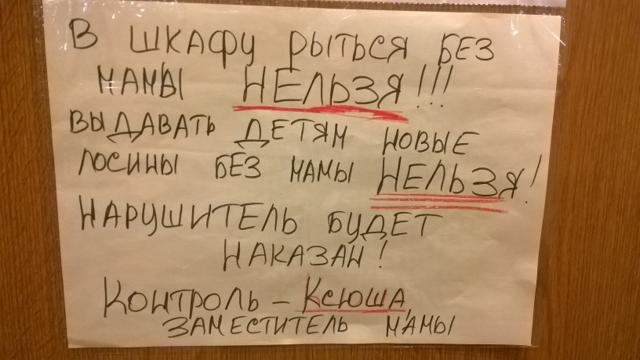 В ШКАФУ РЫТЬСЯ БЕЗ
МАМЫ НЕЛЬЗЯ!!!
ВЫДАВАТЬ ДЕТЯМ НОВЫЕ
ЛОСИНЫ БЕЗ МАМЫ НЕЛЬЗЯ!
НАРУШИТЕЛЬ БУДЕТ
НАКАЗАН!
КОНТРОЛЬ – КСЮША,
ЗАМЕСТИТЕЛЬ МАМЫ